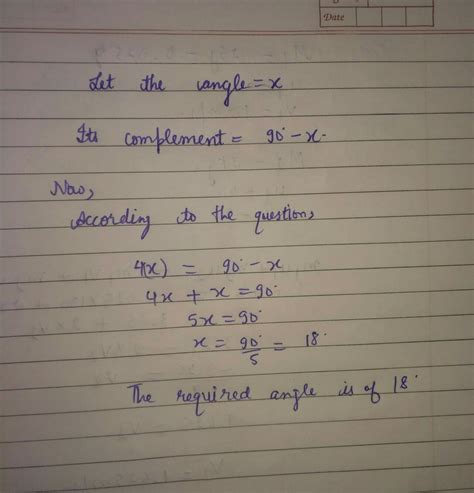 Date
Let the angle = x
Its complement = 90° - x.
Now,
According to the question,
4(x) = 90° - x
4x + x = 90°
5x = 90°
x = 90°/5 = 18°
The required angle is of 18°